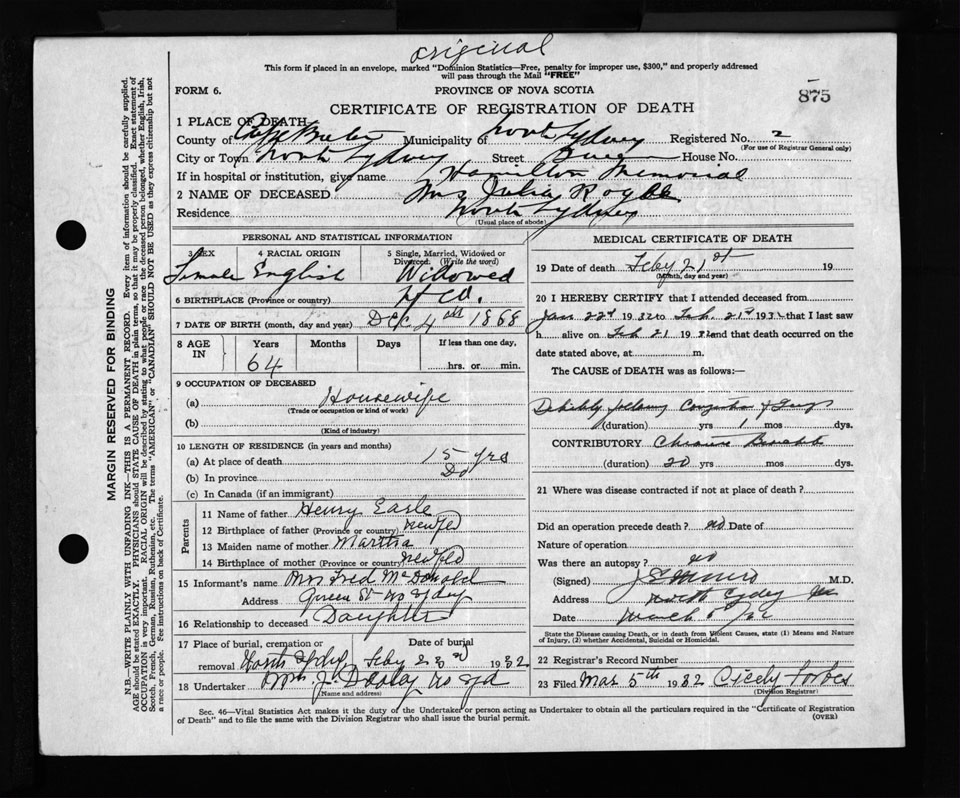 original
This form if placed in an envelope, marked "Dominion Statistics—Free, penalty for improper use, $300," and properly addressed
will pass through the Mail "FREE"
FORM 6. PROVINCE OF NOVA SCOTIA 875
CERTIFICATE OF REGISTRATION OF DEATH
1 PLACE OF DEATH
County of Cape Breton Municipality of North Sydney Registered No. 2
(For use of Registrar General only)
City or Town North Sydney Street Queen House No.
If in hospital or institution, give name Hamilton Memorial
2 NAME OF DECEASED Mrs Julia
Residence North Sydney
(Usual place of abode)
PERSONAL AND STATISTICAL INFORMATION
3 SEX 4 RACIAL ORIGIN 5 Single, Married, Widowed or Divorced. (Write the word)
Female English Widowed
6 BIRTHPLACE (Province or country)
7 DATE OF BIRTH (month, day and year) Dec 4th 1868
8 AGE IN Years Months Days If less than one day,
64 hrs. or min.
9 OCCUPATION OF DECEASED
(a) Housewife
(Trade or occupation or kind of work)
(b)
(Kind of industry)
10 LENGTH OF RESIDENCE (in years and months)
(a) At place of death 15 yrs
(b) In province Do
(c) In Canada (if an immigrant)
Parents
11 Name of father Henry Earle
12 Birthplace of father (Province or country) Newfld
13 Maiden name of mother Martha
14 Birthplace of mother (Province or country) Newfld
15 Informant's name Mrs Fred McDonald
Address Queen St No Sydney
16 Relationship to deceased Daughter
17 Place of burial, cremation or Date of burial
removal North Sydney Feby 23rd 1932
18 Undertaker Mrs J
(Name and address)
MEDICAL CERTIFICATE OF DEATH
19 Date of death Feby 21st 19
(Month, day and year)
20 I HEREBY CERTIFY that I attended deceased from
Jan 22d 1932 to Feb. 21st 1932 that I last saw
h alive on Feb 21 1932 and that death occurred on the
date stated above, at m.
The CAUSE of DEATH was as follows:
Debility following Congestion of Lungs
(duration) yrs 1 mos dys.
CONTRIBUTORY Chronic
(duration) 20 yrs mos dys.
21 Where was disease contracted if not at place of death?
Did an operation precede death? no Date of
Nature of operation
Was there an autopsy? no
(Signed) M.D.
Address North Sydney
Date March 5
State the Disease causing Death, or in death from Violent Causes, state (1) Means and Nature
of Injury, (2) whether Accidental, Suicidal or Homicidal.
22 Registrar's Record Number
23 Filed Mar 5th 1932 Cicely Forbes
(Division Registrar)
Sec. 46—Vital Statistics Act makes it the duty of the Undertaker or person acting as Undertaker to obtain all the particulars required in the "Certificate of Registration
of Death" and to file the same with the Division Registrar who shall issue the burial permit. (OVER)
MARGIN RESERVED FOR BINDING
N.B.—WRITE PLAINLY WITH UNFADING INK—THIS IS A PERMANENT RECORD. Every item of information should be carefully supplied.
AGE should be stated EXACTLY. PHYSICIANS should STATE CAUSE OF DEATH in plain terms, so that it may be properly classified. Exact statement of
OCCUPATION is very important. RACIAL ORIGIN will be described by stating to what people or race the deceased person belonged, whether English, Irish,
Scotch, French, German, Russian, Ruthenian, etc. The terms "AMERICAN" or "CANADIAN" SHOULD NOT BE USED as they express citizenship but not
a race or people. See instructions on back of Certificate.